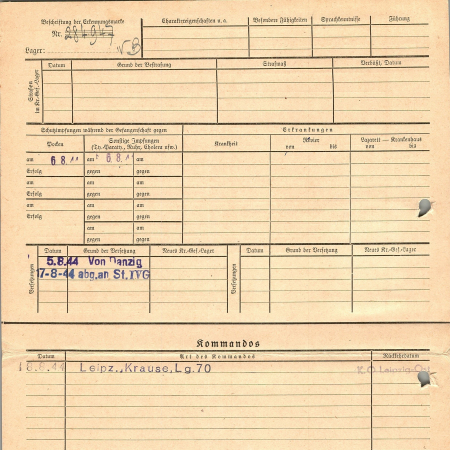 Beschriftung der Erkennungsmarke
Nr. 281947
Lager: VB
Charaktereigenschaften u. a.
Besondere Fähigkeiten
Sprachkenntnisse
Führung
Strafen im Kr.-Gef.-Lager
Datum
Grund der Bestrafung
Strafmaß
Verbüßt, Datum
Schutzimpfungen während der Gefangenschaft gegen
Erkrankungen
Pocken
Sonstige Impfungen
(Ty.-Paraty., Ruhr, Cholera usw.)
Krankheit
Revier
von bis
Lazarett — Krankenhaus
von bis
am 6 8. 44 am 6 8. am
Erfolg gegen gegen
am am am
Erfolg gegen gegen
am am am
Erfolg gegen gegen
am am
gegen gegen
Versetzungen
Datum Grund der Versetzung Neues Kr.-Gef.-Lager
5.8.44 Von Danzig
17-8-44 abg.an St. IVG
Versetzungen
Datum Grund der Versetzung Neues Kr.-Gef.-Lager
Kommandos
Datum Art des Kommandos Rückkehrdatum
18.8.44 Leipz., Krause, Lg. 70